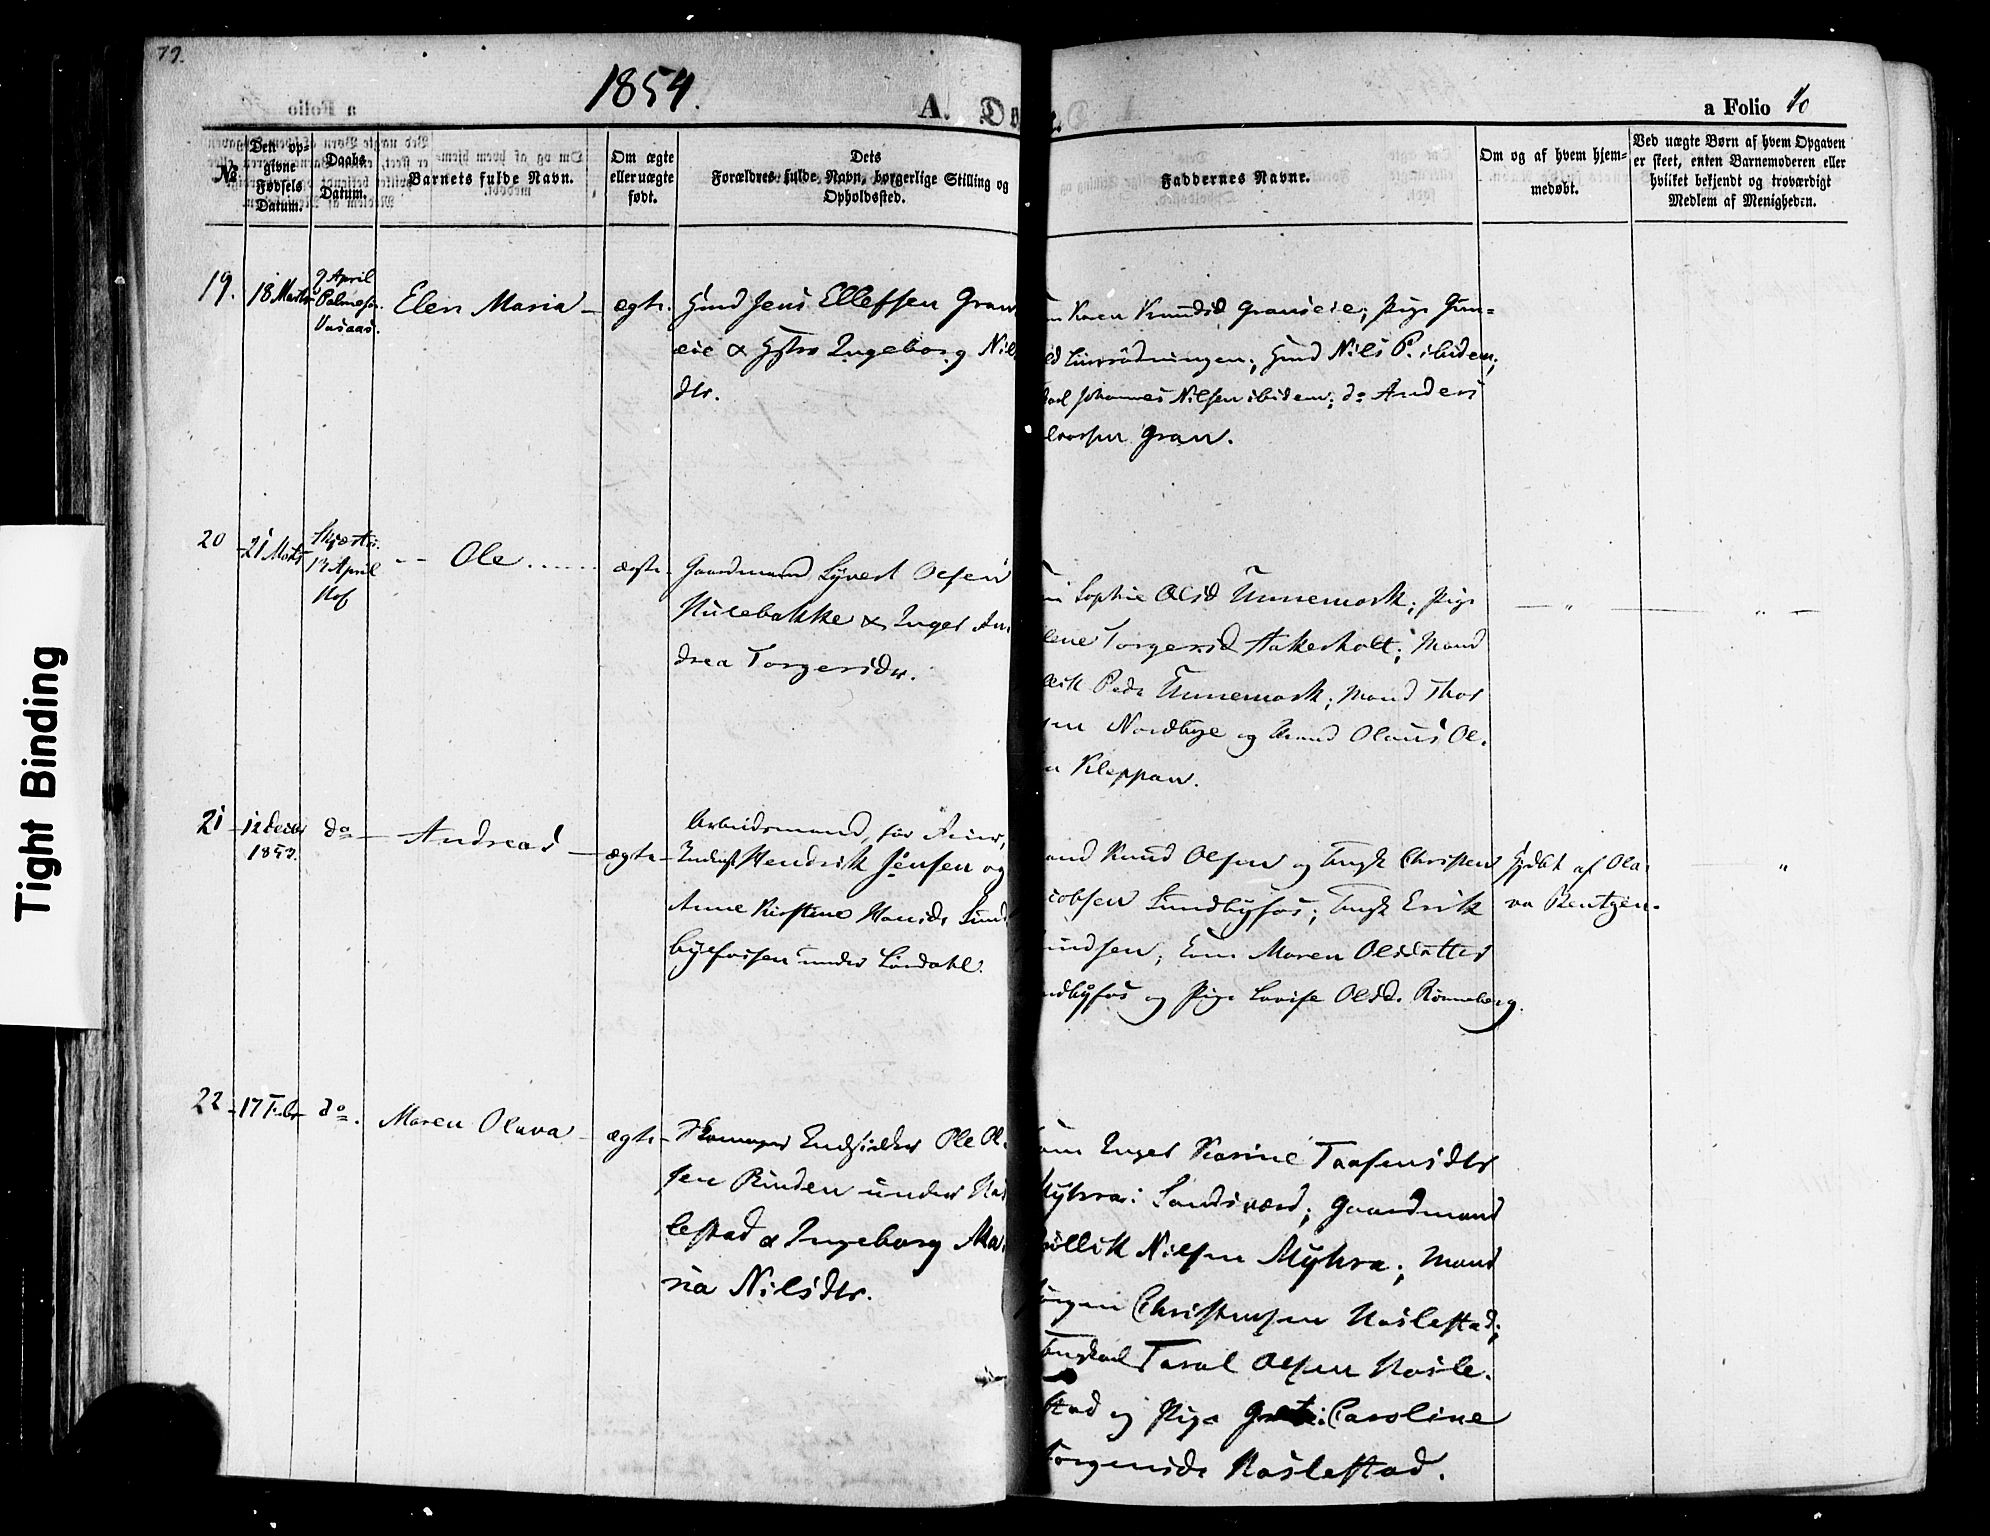 79.
1854.
A. D
a Folio 10
Tight Binding
№
Den op-
givne
Fødsels
Datum.
Daabs
Datum.
Barnets fulde Navn.
Om ægte
eller uægte
født.
Dets
Forældres fulde Navn, borgerlige Stilling og
Opholdssted.
Faddernes Navne.
Om og af hvem hjem-
medøbt.
Ved uægte Børn af hvem Opgaven
er skeet, enten Barnemoderen eller
hvilket bekjendt og troværdigt
Medlem af Menigheden.
19.
18 Marts
9 April
Palmesø.
Vasaas.
Elen Maria
ægte.
Hmd Jens Ellefsen Gran
eie & Hstr Ingeborg Nil
dtr.
Karen Knudsd. Granseie; Pige Gun=
Hmd Nils P. ibidem;
Johannes Nilsen ibidem; do Anders
Gran.
20
21 Marts
Skjærtor.
13 April
Hof
Ole
ægte
Gaardmand Syvert Olsen
Hulebakke & Inger An
drea Torgersdtr.
Sophie Olsd Unnemark; Pige
lene Torgersd Aakerholt; Mand
Peds Unnemark; Mand Thor
sen Nordbye og Mand Olaus Ol.
n Kleppan.
21
12 Decbr
1853.
do
Andreas
ægte
Arbeidsmand, før
Inderst Hendrik Jensen og
Anne Kirstine Hansdr Sund
byefossen under Løvdahl.
and Knud Olsen og Ungk Christen
cobsen Sundbyfos; Ungk Erik
undsen; Kone Maren Olsdatter
ndbyfos og Pige Lovise Olsd. Rønneberg.
Hjdbt af Ola-
va Rentzen.
22
17 Febr
do.
Maren Olava
ægte
Skomager Indsidder Ole Ol
sen Rinden under Has
lestad & Ingeborg Ma
ria Nilsdtr.
Inger Karine Taafensdtr
Myhra i Sandsværd; Gaardmand
Nilsen Myhra; Mand
ørgen Christensen Haslestad;
Ungkarl Taral Olsen Hasle-
stad og Pige Caroline
Torgersdr Haslestad.